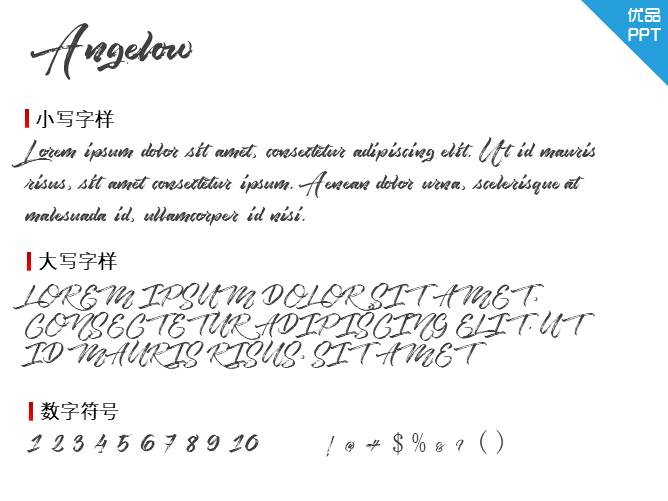 优品
PPT
Angelow
小写字样
Lorem ipsum dolor sit amet, consectetur adipiscing elit. Ut id mauris
risus, sit amet consectetur ipsum. Aenean dolor urna, scelerisque at
malesuada id, ullamcorper id nisi.
大写字样
LOREM IPSUM DOLOR SIT AMET,
CONSECTETUR ADIPISCING ELIT. UT
ID MAURIS RISUS, SIT AMET
数字符号
1 2 3 4 5 6 7 8 9 10 ! @ # $ % & ( )